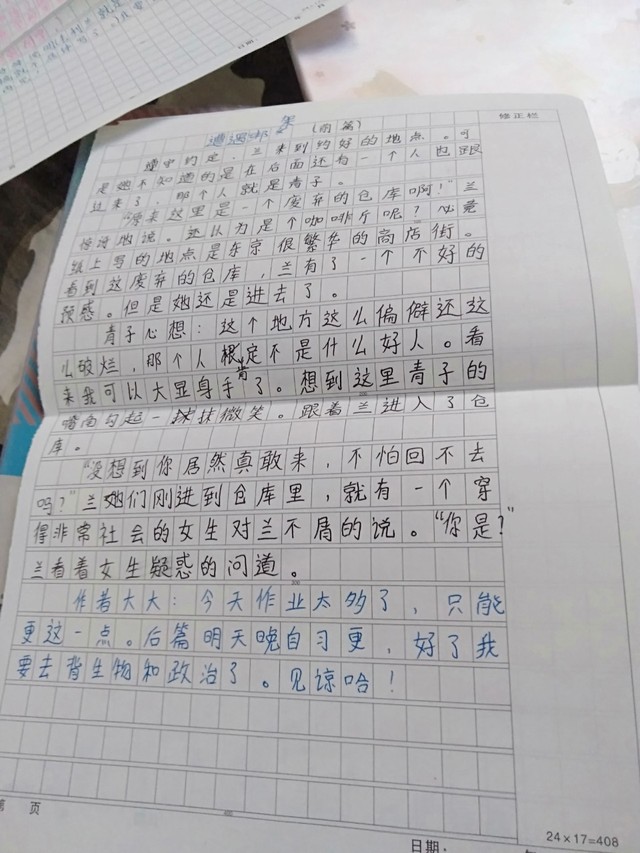 修正栏
遭遇绑架 (前篇)
 中约定，兰来到约好的地点。可
是她不知道的是在后面还有一个人也跟
过来了，那个人就是青子。
"原来这里是一个废弃的仓库啊！"兰
惊讶地说。还认为是个咖啡厅呢？必竟
纸上写的地点是东京很繁华的商店街。
看到这废弃的仓库，兰有了一个不好的
预感。但是她还是进去了。
青子心想：这个地方这么偏僻还这
么破烂，那个人肯定不是什么好人。看
来我可以大显身手了。想到这里青子的
嘴角勾起一抹微笑。跟着兰进入了仓
库。
"没想到你居然真敢来，不怕回不去
吗？"兰她们刚进到仓库里，就有一个穿
得非常社会的女生对兰不屑的说。"你是？"
兰看着女生疑惑的问道。
作者大大：今天作业太多了，只能
更这一点。后篇明天晚自习更，好了我
要去背生物和政治了。见谅哈！
第 页
24×17=408
日期：